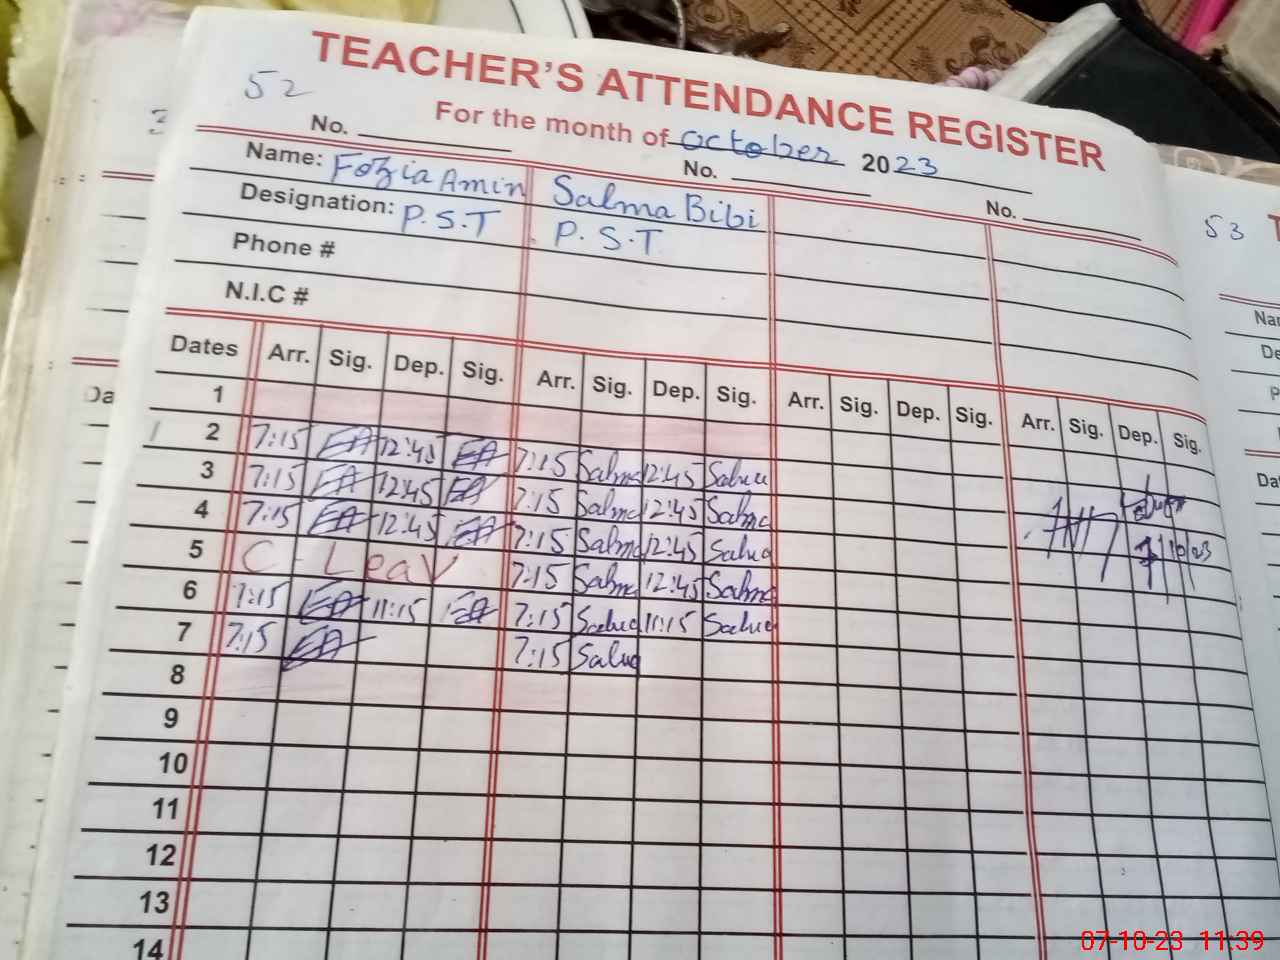 52
TEACHER'S ATTENDANCE REGISTER
For the month of october 2023
No. No. No.
Name: Fozia Amin Salma Bibi
Designation: P.S.T P.S.T
Phone #
N.I.C #
Dates Arr. Sig. Dep. Sig. Arr. Sig. Dep. Sig. Arr. Sig. Dep. Sig. Arr. Sig. Dep. Sig.
1
2 7:15 FA 12:45 FA 7:15 Salma 12:45 Salma
3 7:15 FA 12:45 FA 7:15 Salma 12:45 Salma
4 7:15 FA 12:45 FA 7:15 Salma 12:45 Salma
5 C-Leav 7:15 Salma 12:45 Salma
6 7:15 FA 11:15 FA 7:15 Salma 11:15 Salma
7 7:15 FA 7:15 Salma
8
9
10
11
12
13
14
53
T
Nar
De
P
Da
Da
07-10-23 11:39